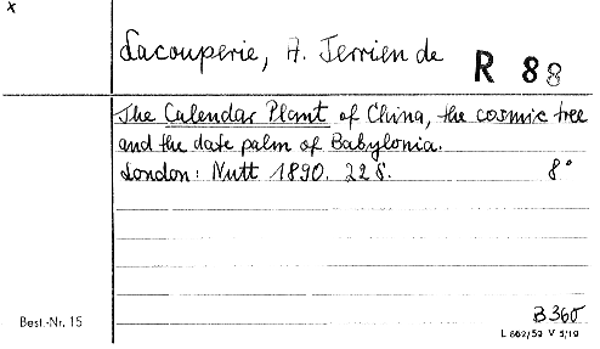 x
Lacouperie, A. Terrien de
R 88
The Calendar Plant of China, the cosmic tree
and the date palm of Babylonia.
London: Nutt 1890. 22 S.
8°
B 360
Best.-Nr. 15
L 662/53 V 5/19